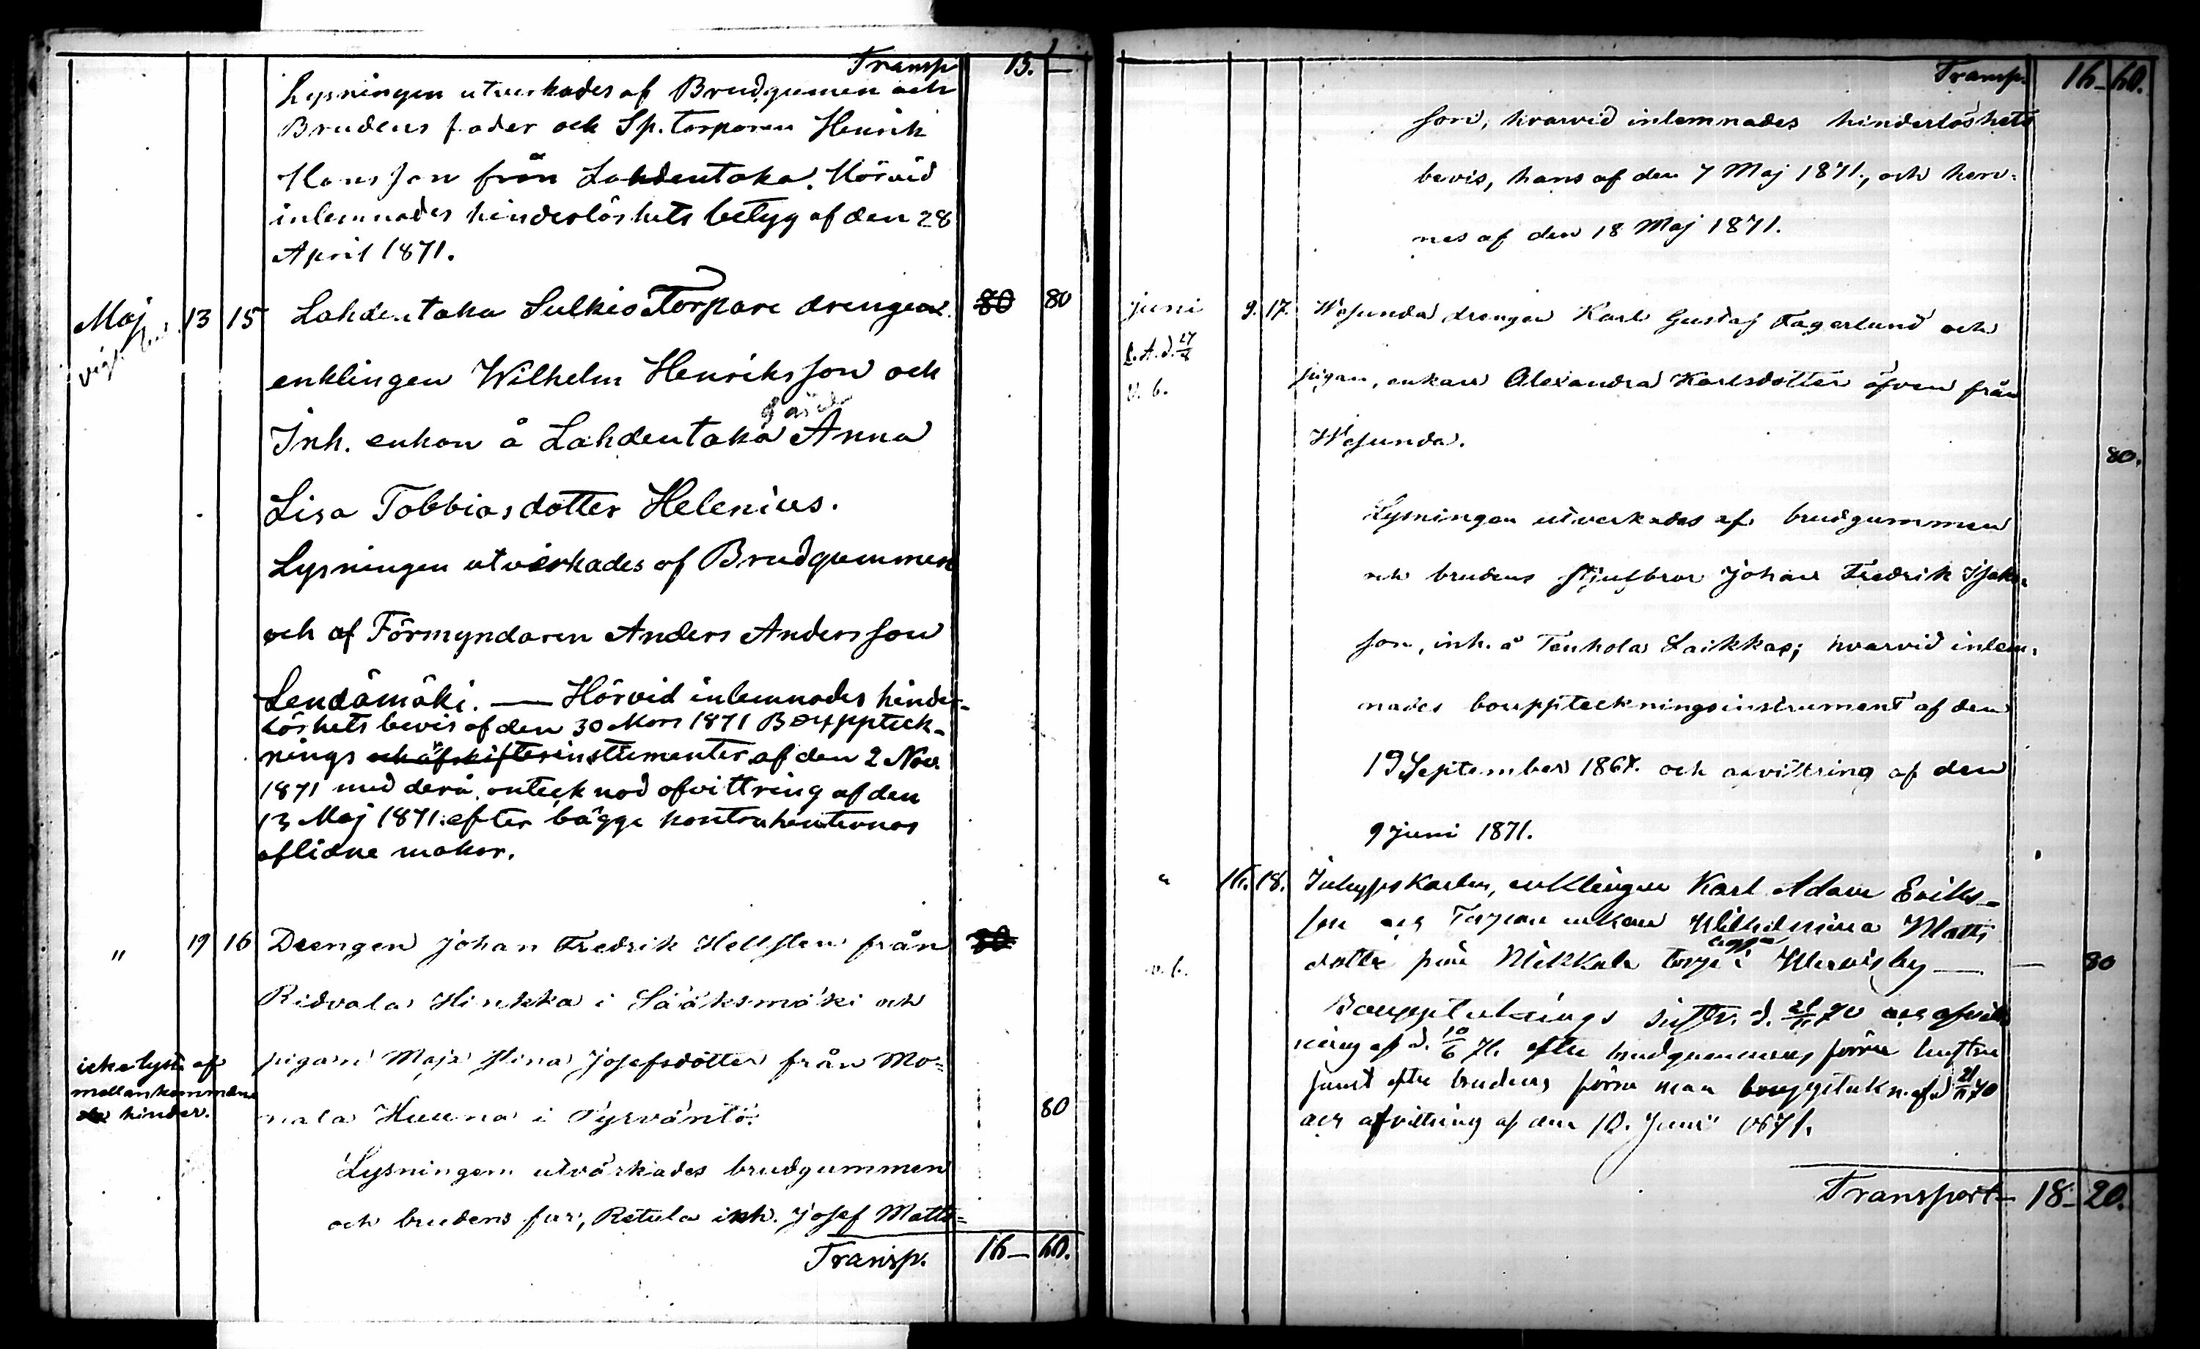 Transp 15. —
Lysningen utverkades af Brudgumen och
Brudens fader och Sp. torparen Henrik
Hansson från Lahdentaka. Härvid
inlemnades hinderlöshets betyg af den 28
April 1871.
Maj 13 15 Lahdentaka Sulkis Torpare drengen 80 80
enklingen Wilhelm Henriksson och
Inh. enkan å Lahdentaka Anna
Lisa Tobbiasdotter Helenius.
Lysningen utverkades af Brudgummen
och af Förmyndaren Anders Andersson
Lendämäki. — Härvid inlemnades hinder-
löshets bevis af den 30 Mars 1871 Bouppteck-
nings och afskiftesinstrumenter af den 2 Nov.
1871 med derå antecknad afvittring af den
13 Maj 1871. efter bägge kontrahenternas
aflidne makor.
" 19 16 Drengen Johan Fredrik Hellsten från 80
Ridvala Hinkka i Sääksmäki och
pigan Maja Stina Josefsdotter från Mo-
nala Huuna i Tyrväntö. 80
icke lyst af
mellankommane
hinder.
Lysningen utvärkades brudgummen
och brudens far, Retula inh. Josef Matts-
Transp. 16 — 60.
Transp. 16 — 60.
son, hvarvid inlemnades hinderlöshets
bevis, hans af den 7 Maj 1871, och hen-
nes af den 18 Maj 1871.
Juni 9. 17. Wesunda drengen Karl Gustaf Fagerlund och
pigan, enkan Alexandra Karlsdotter äfven från
Wesunda. 80.
Lysningen utverkades af brudgummen
och brudens stjufbror Johan Fredrik Isaks-
son, inh. å Tenhola Laikkas; hvarvid inlem-
nades bouppteckningsinstrument af den
19 September 1867. och afvittring af den
9 Juni 1871.
" 16. 18. Inhyses Karlen, enklingen Karl Adam Eriks-
son och Torpare enkan Wilhelmina Matts
dotter från Mikkola torp i — — 80
v. b.
Boupptecknings instr. d. 21/11 70 och afvitt
ring af d. 10/6 71. efter brudgummens förra hustru
samt efter brudens förra man boupptekn. af d 21/11 70
och afvittring af den 10. Juni 1871.
Transport — 18 — 20.